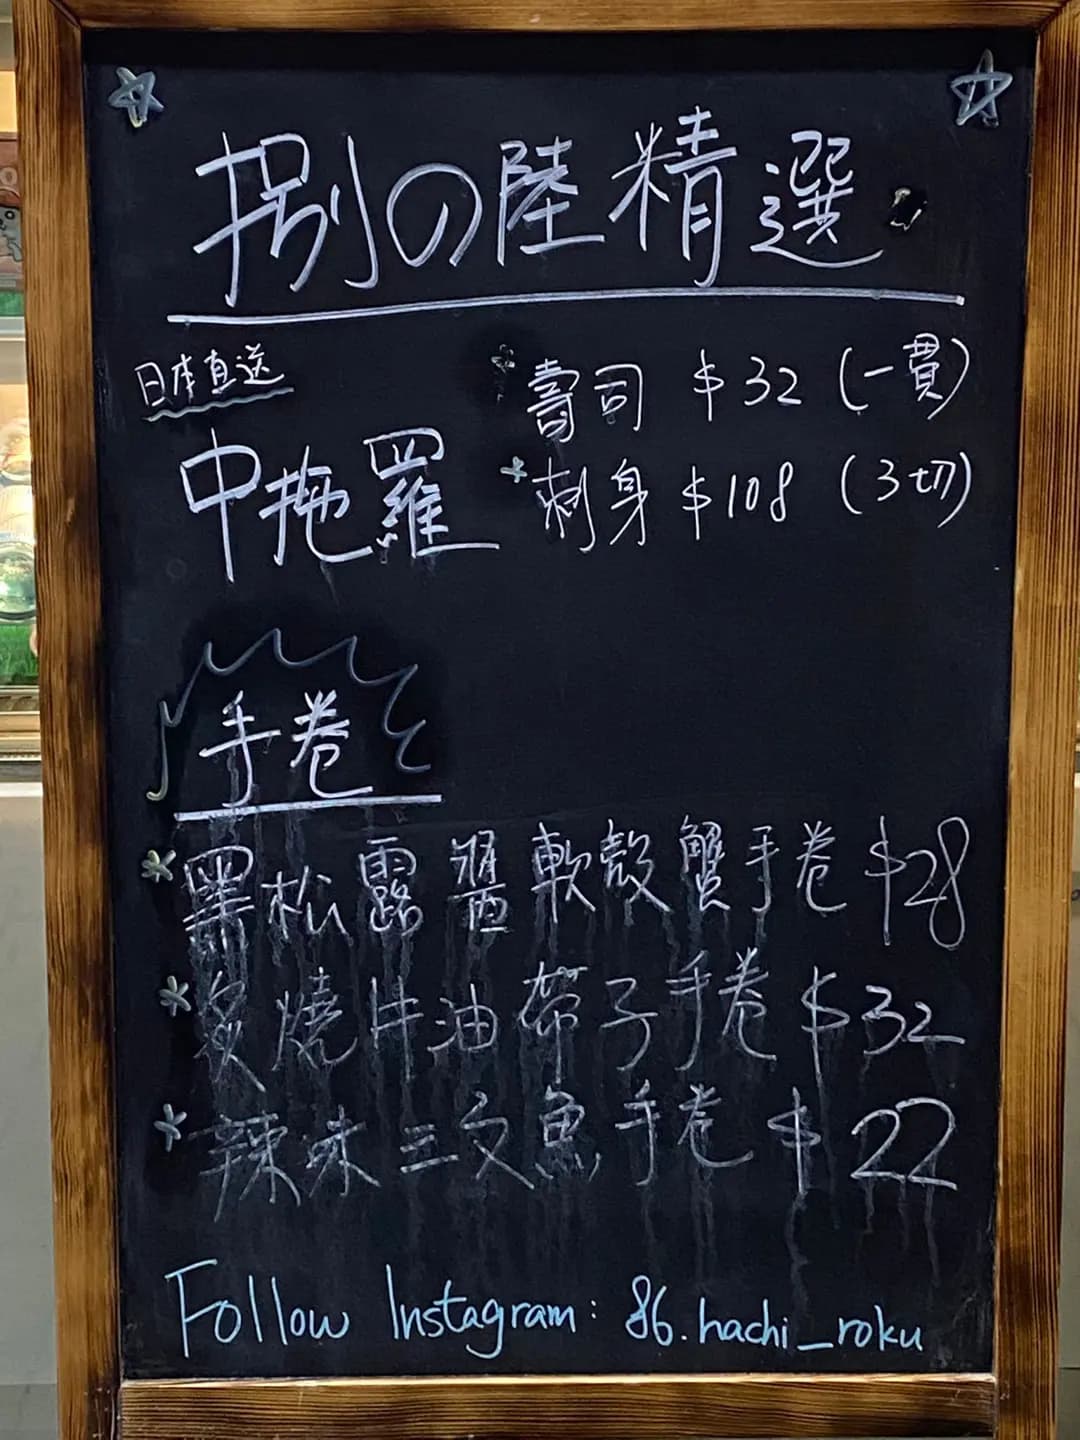 捌の陸精選
日本直送
中拖羅
壽司 $32 (一貫)
刺身 $108 (3切)
手卷
黑松露醬軟殼蟹手卷 $28
炙燒牛油帶子手卷 $32
辣味三文魚手卷 $22
Follow Instagram: 86.hachi_roku